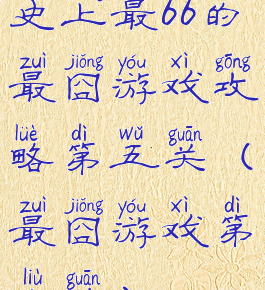 史上最66的
zuì jiǒng yóu xì gōng
最囧游戏攻
lüè dì wǔ guān
略第五关(
zuì jiǒng yóu xì dì
最囧游戏第
liù guān